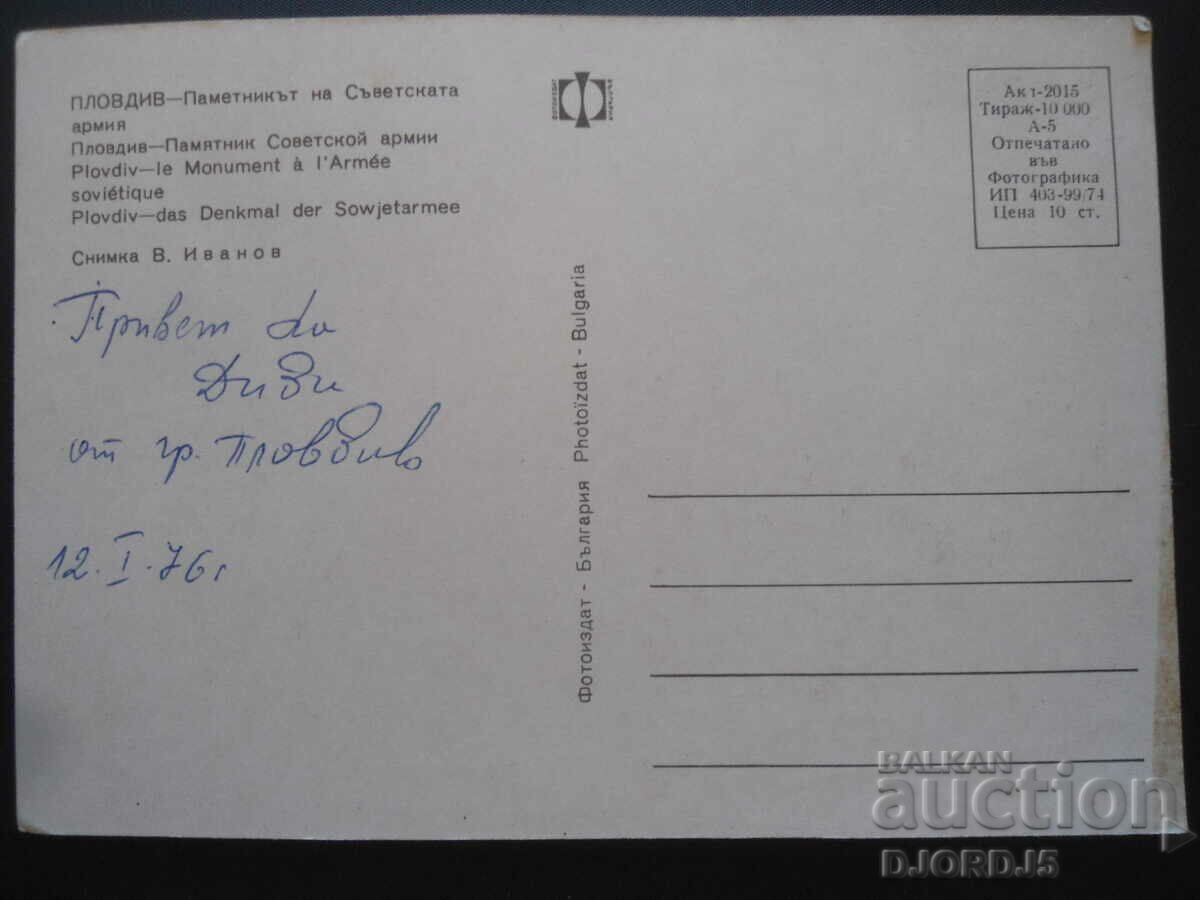 ПЛОВДИВ—Паметникът на Съветската
армия
Пловдив—Памятник Советской армии
Plovdiv—le Monument à l'Armée
soviétique
Plovdiv—das Denkmal der Sowjetarmee
Снимка В. Иванов
Привет
от гр. Пловдив
12.I.76г
ФОТОИЗДАТ
Фотоиздат - България Photoïzdat - Bulgaria
Ак 1-2015
Тираж-10 000
А-5
Отпечатано
във
Фотографика
ИП 403-99/74
Цена 10 ст.
BALKAN
auction
DJORDJ5